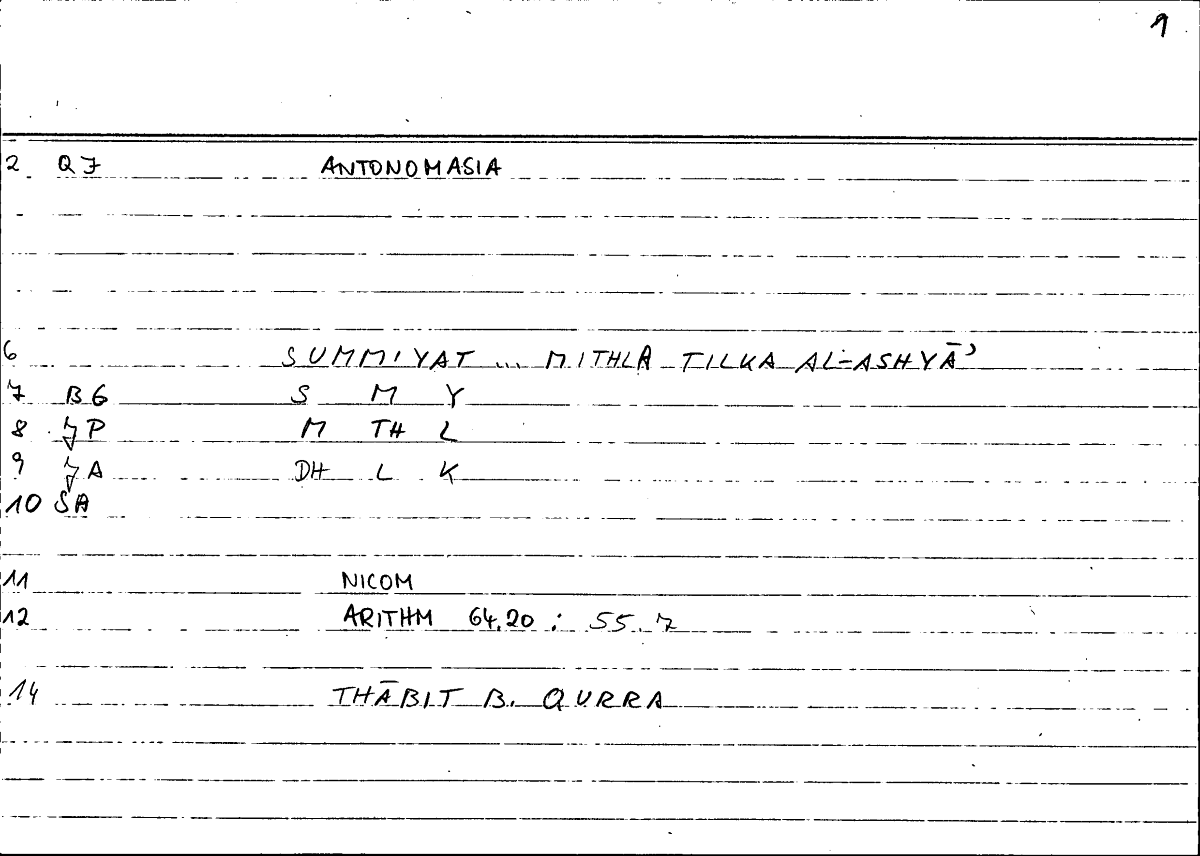 1
2 Q7 ANTONOMASIA
6 SUMMIYAT ... MITHLA TILKA AL-ASHYĀʾ
7 B6 S M Y
8 P M TH L
9 A DH L K
10 SA
11 NICOM
12 ARITHM 64.20 : 55.7
14 THĀBIT B. QURRA